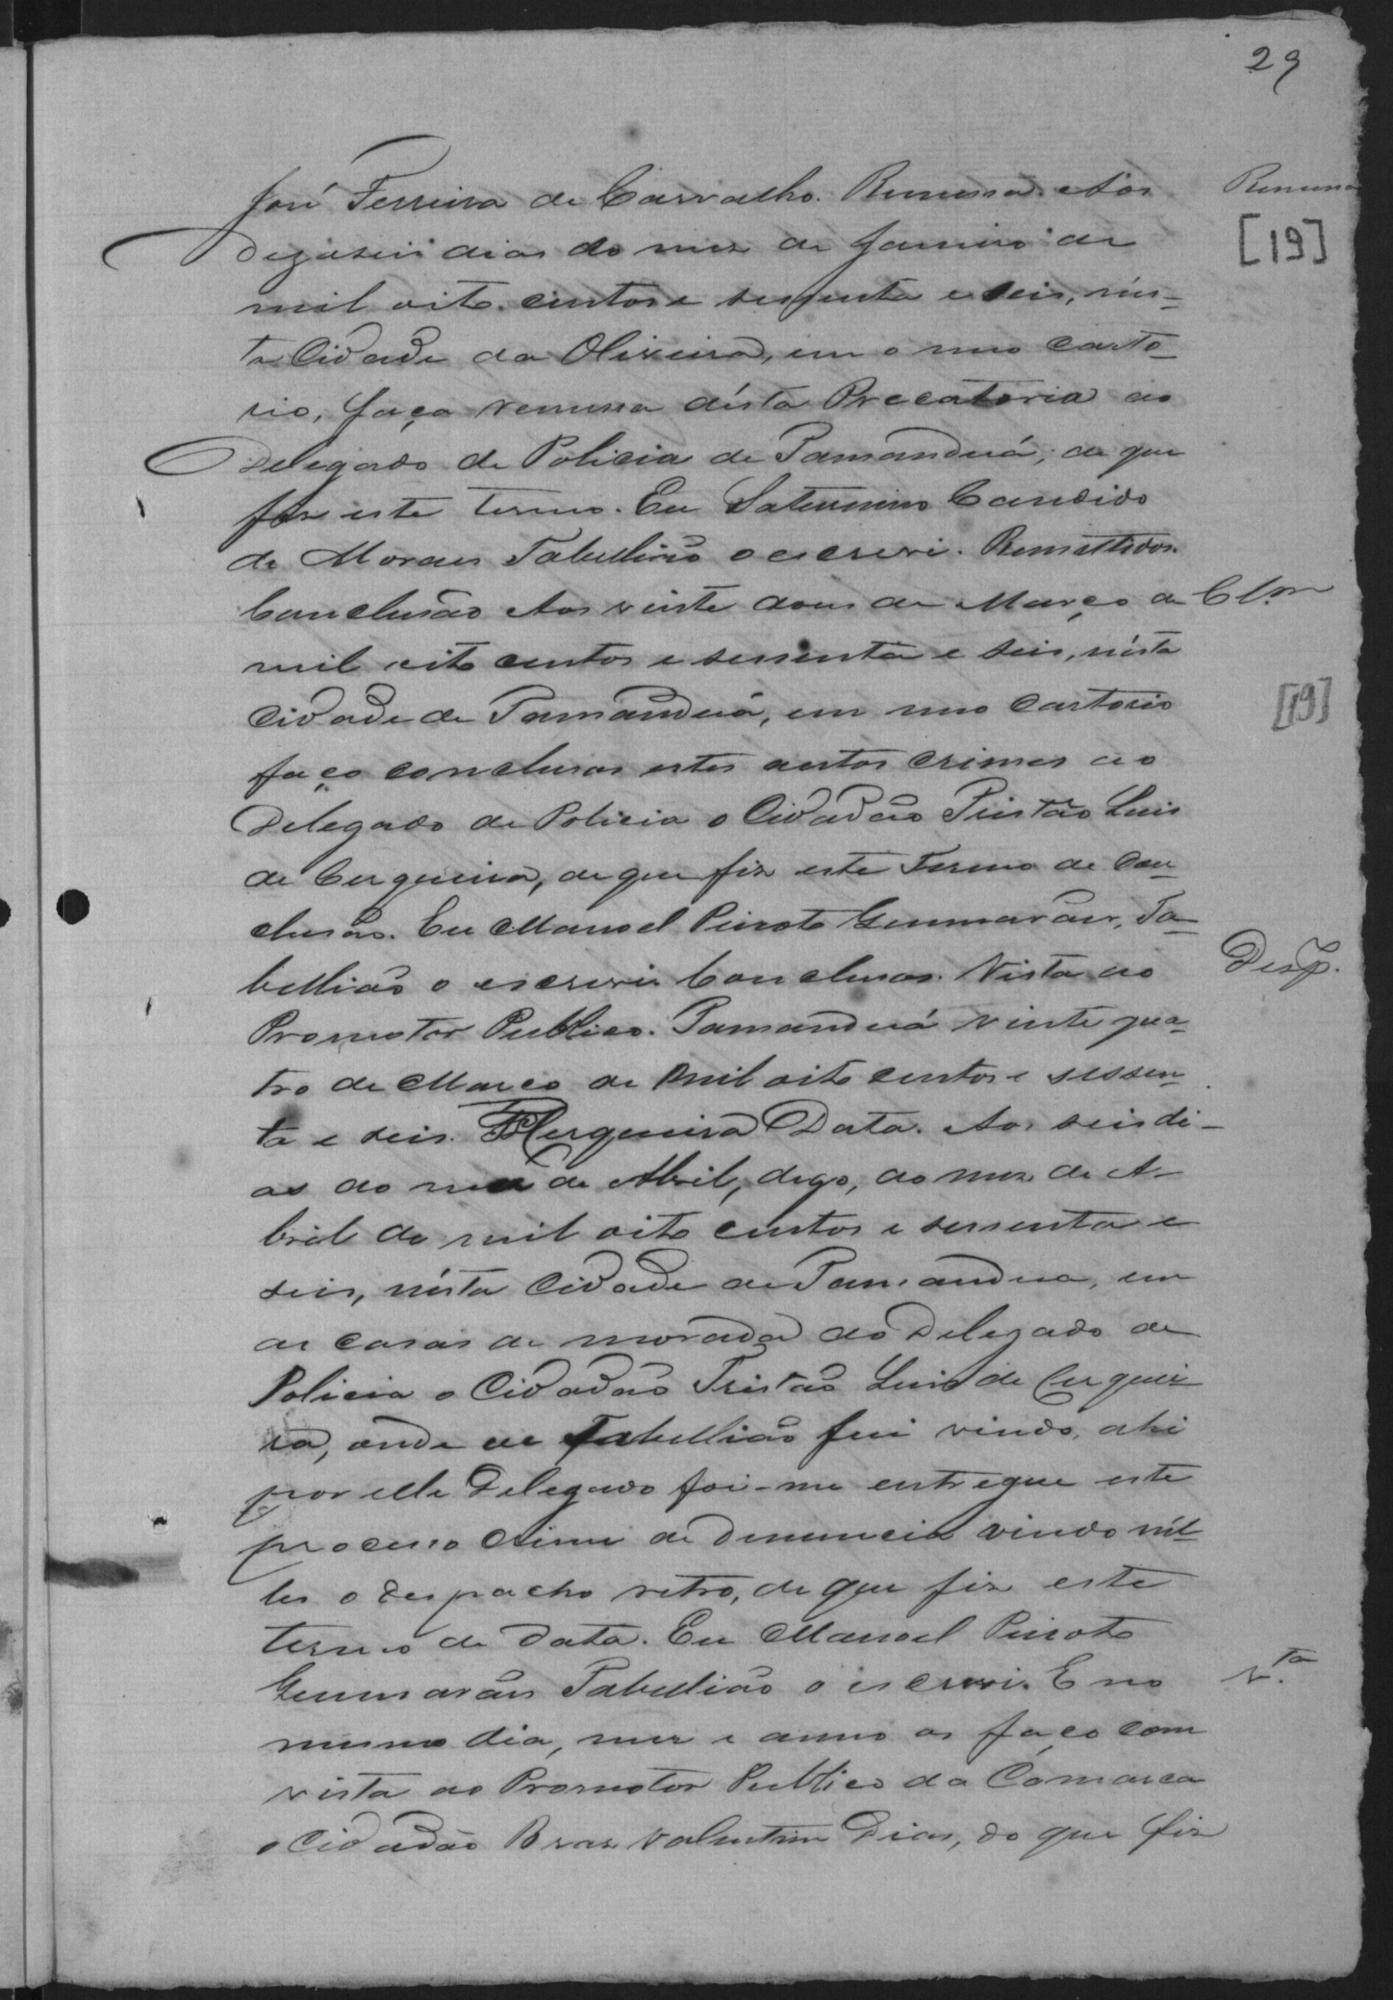 29
José Ferreira de Carvalho. Remessa. Aos
Remessa
[19]
dezaseis dias do mez de Janeiro de
mil oito centos e sessenta e seis, nés-
ta Cidade da Oliveira, em o meo carto-
rio, faço remessa désta Precatoria ao
Delegado de Policia de Tamanduá, de que
fiz este termo. Eu Saturnino Candido
de Moraes Tabellião o escrevi. Remettidos.
Conclusão Aos vinte dous de Março de
Clm
mil oito centos e sessenta e seis, nésta
Cidade de Tamanduá, em meo Cartorio
[19]
faço conclusos estes autos crimes ao
Delegado de Policia o Cidadão Tristão Luis
de Cerqueira, de que fiz este Termo de Con-
clusão. Eu Manoel Peixoto Guimarães, Ta-
bellião o escrevi. Conclusos. Vista ao
Desp.
Promotor Publico. Tamanduá vinte qua-
tro de Março de mil oito centos e sessen-
ta e seis. Cerqueira Data. Aos seis di-
as do mez de Abril, digo, do mez de A-
bril de mil oito centos e sessenta e
seis, nésta Cidade de Tamandua, em
as casas de morada do Delegado de
Policia o Cidadão Tristão Luis de Cerquei-
ra, onde eu Tabellião fui vindo, ahi
por elle Delegado foi-me entregue este
processo crime de denuncia vindo nél-
les o despacho retro, de que fiz este
termo de data. Eu Manoel Peixoto
Guimarães Tabellião o escrevi. E no
V.ta
mesmo dia, mez e anno os faço com
vista ao Promotor Publico da Comarca
o Cidadão Braz Valentim Dias, do que fiz